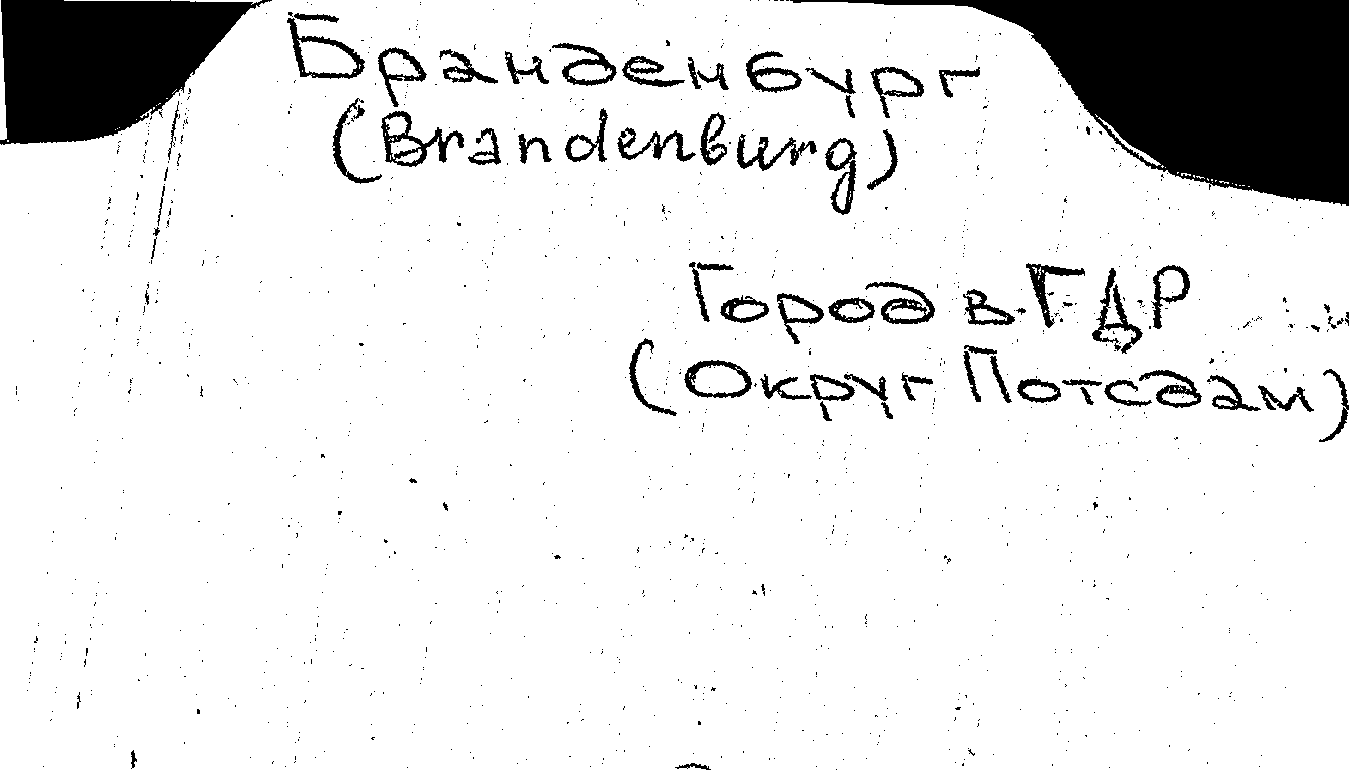 Бранденбург
(Brandenburg)
Город в ГДР
(Округ Потсдам)